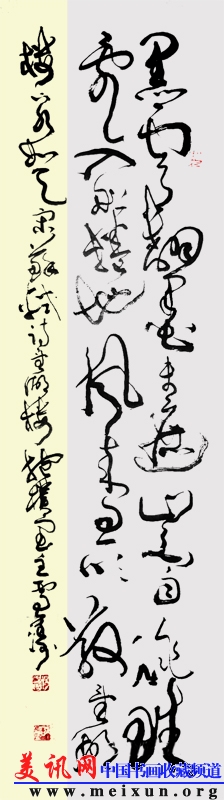 黑雲翻墨未遮山白雨跳珠
亂入船捲地風来忽吹散望湖
樓下水如天宋蘇軾詩望湖樓
美讯网 中国书画收藏频道
www.meixun.org